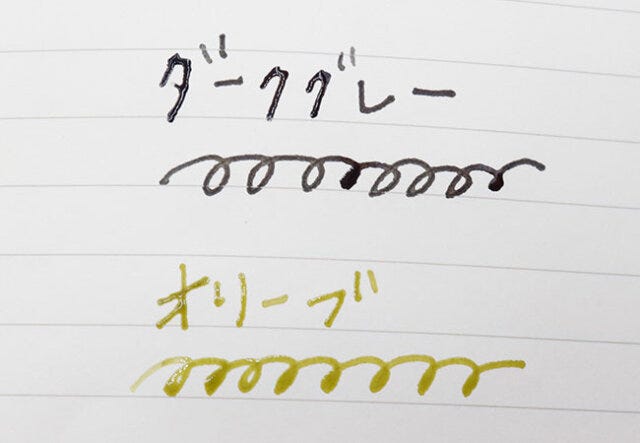 ダークグレー
オリーブ